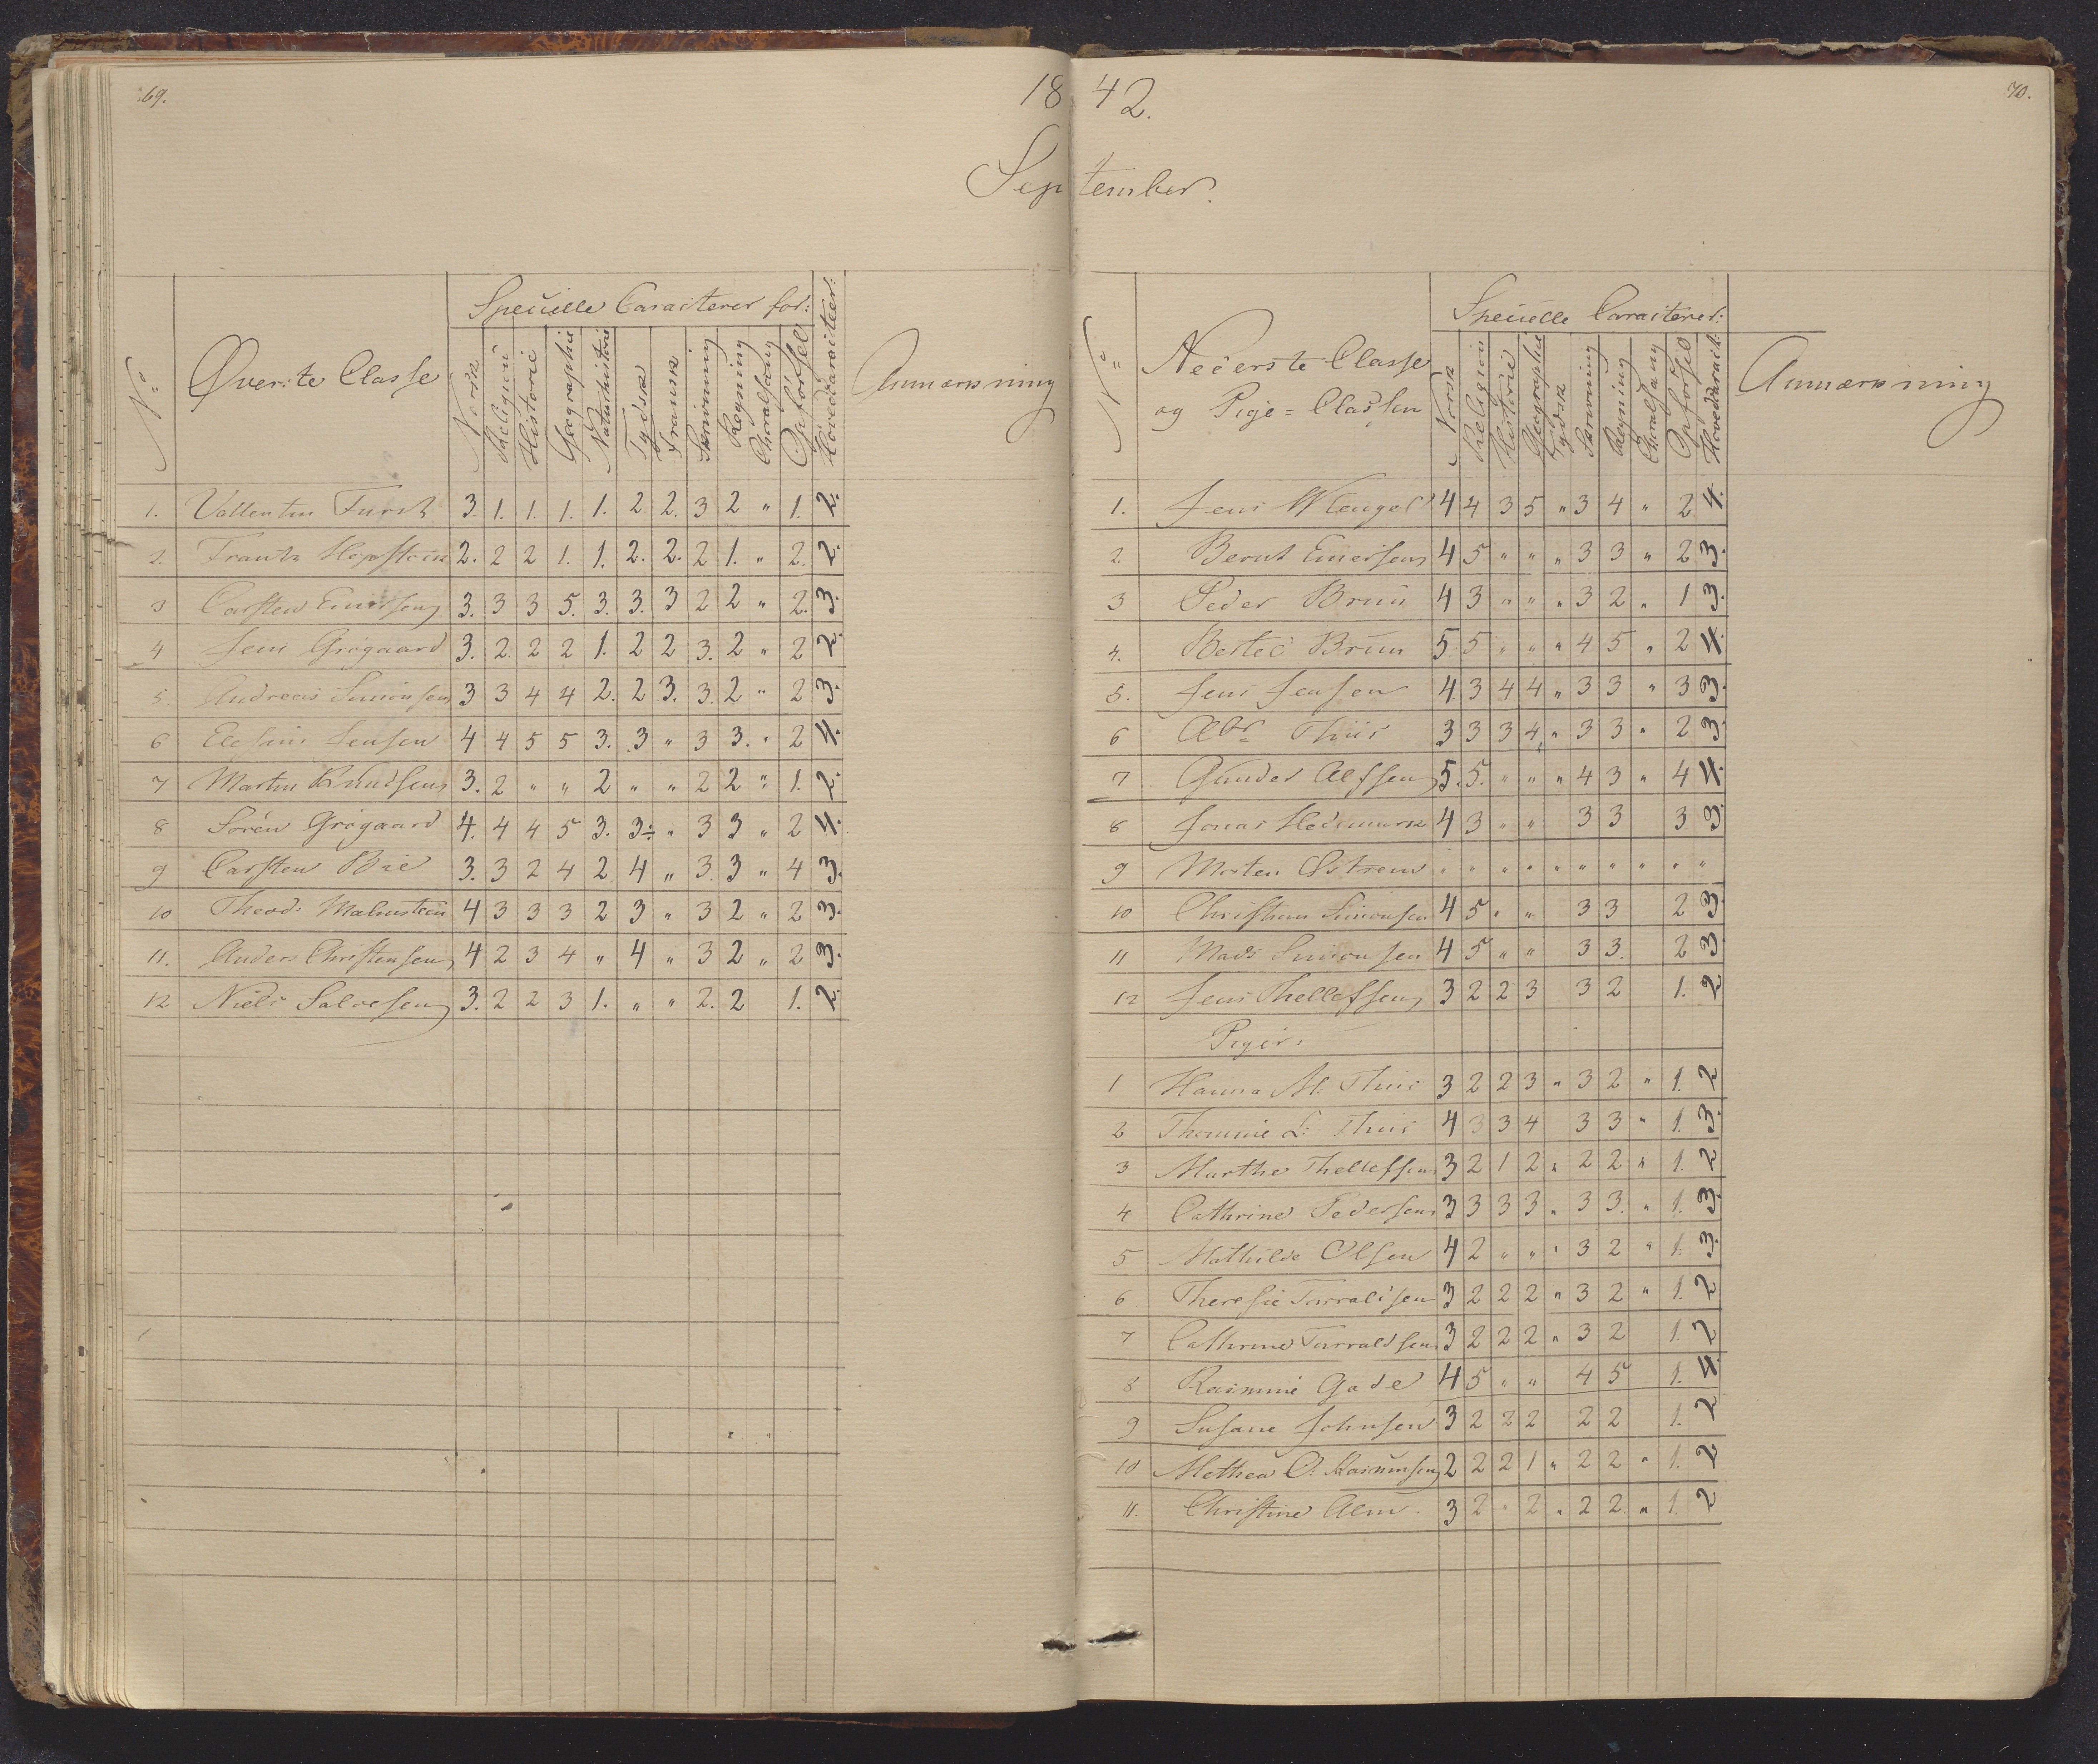 69.
18 42.
70.
September.
No
Øverste Classe
Specielle Caracterer for:
Norsk
Religion
Historie
Geographie
Naturhistorie
Tydsk
Fransk
Skrivning
Regning
Choralsang
Opførsel
Hovedkaracteer:
Anmærkning
1. Vallentin Fürst 3. 1. 1. 1. 1. 2 2. 3 2 " 1. 2.
2. Frantz 2. 2 2 1. 1. 2. 2. 2 1. " 2. 2.
3 Carsten Einersen 3. 3 3 5. 3. 3. 3 2 2 " 2. 3.
4 Jens Grøgaard 3. 2. 2 2 1. 2 2 3. 2 " 2 2.
5. Andreas Simonsen 3 3 4 4 2. 2 3. 3. 2 " 2 3.
6 Jensen 4 4 5 5 3. 3 " 3 3. " 2 4.
7 Martin Knudsen 3. 2 " " 2 " " 2 2 " 1. 2.
8 Søren Grøgaard 4. 4 4 5 3. 3÷ " 3 3 " 2 4.
9 Carsten Bie 3. 3 2 4 2 4 " 3. 3 " 4 3.
10 Theod: Malmstein 4 3 3 3 2 3 " 3 2 " 2 3.
11. Anders Christensen 4 2 3 4 " 4 " 3 2 " 2 3.
12 Niels Salvesen 3. 2 2 3 1. " " 2. 2 1. 2.
No
Nederste Classe
og Pige=Classen
Specielle Caracterer:
Norsk
Religion
Historie
Geographie
Tydsk
Skrivning
Regning
Choralsang
Opførsel
Hovedkarakt:
Anmærkning
1. Jens Wlengel 4 4 3 5 " 3 4 " 2 4.
2. Bernt Einersen 4 5 " " " 3 3 " 2 3.
3 Peder Bruun 4 3 " " " 3 2 " 1 3.
4. Bertel Bruun 5. 5 " " " 4 5 " 2 4.
5. Jens Jensen 4 3 4 4 " 3 3 " 3 3.
6 Abr Thiis 3 3 3 4 " 3 3 " 2 3.
7 Gunder Alfsen 5. 5. " " " 4 3 " 4 4.
8 Jonas Hedemark 4 3 " " 3 3 3 3.
9 Morten Østrem " " " " " " " " " "
10 Christian Simonsen 4 5 " " 3 3 2 3.
11 Mads Simonsen 4 5 " " 3 3. 2 3.
12 Jens Thellefsen 3 2 2 3 3 2 1. 2
Piger:
1 Hanna M: Thiis 3 2 2 3 " 3 2 " 1. 2
2 Thomine L: Thiis 4 3 3 4 3 3 " 1. 3.
3 Marthe Thellefsen 3 2 1 2 " 2 2 " 1. 2
4 Cathrine Pedersen 3 3 3 3 " 3 3. " 1. 3.
5 Mathilde Olsen 4 2 " " " 3 2 " 1. 3.
6 Theresie Tarraldsen 3 2 2 2 " 3 2 " 1. 2
7 Cathrine Tarraldsen 3 2 2 2 " 3 2 1. 2
8 Rasmine Gade 4 5 " " 4 5 1. 4.
9 Susane Johnsen 3 2 2 2 2 2 1. 2
10 Methea O: Rasmusen 2 2 2 1 " 2 2 " 1. 2
11. Christine Alm. 3 2 " 2 " 2 2. " 1. 2